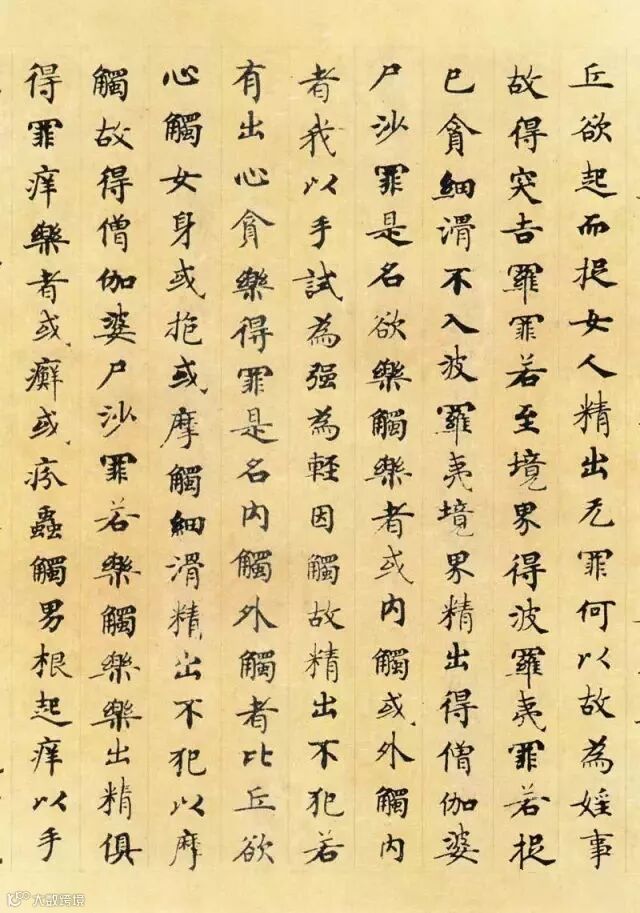 丘欲起而捉女人精出无罪何以故為婬事
故得突吉羅罪若至境界得波羅夷罪若捉
已貪細滑不入波羅夷境界精出得僧伽婆
尸沙罪是名欲樂觸樂者或内觸或外觸内
者我以手試為强為軽因觸故精出不犯若
有出心貪樂得罪是名内觸外觸者比丘欲
心觸女身或抱或摩觸細滑精出不犯以摩
觸故得僧伽婆尸沙罪若樂觸樂樂出精俱
得罪痒樂者或癬或疥蟲觸男根起痒以手
大数跨境